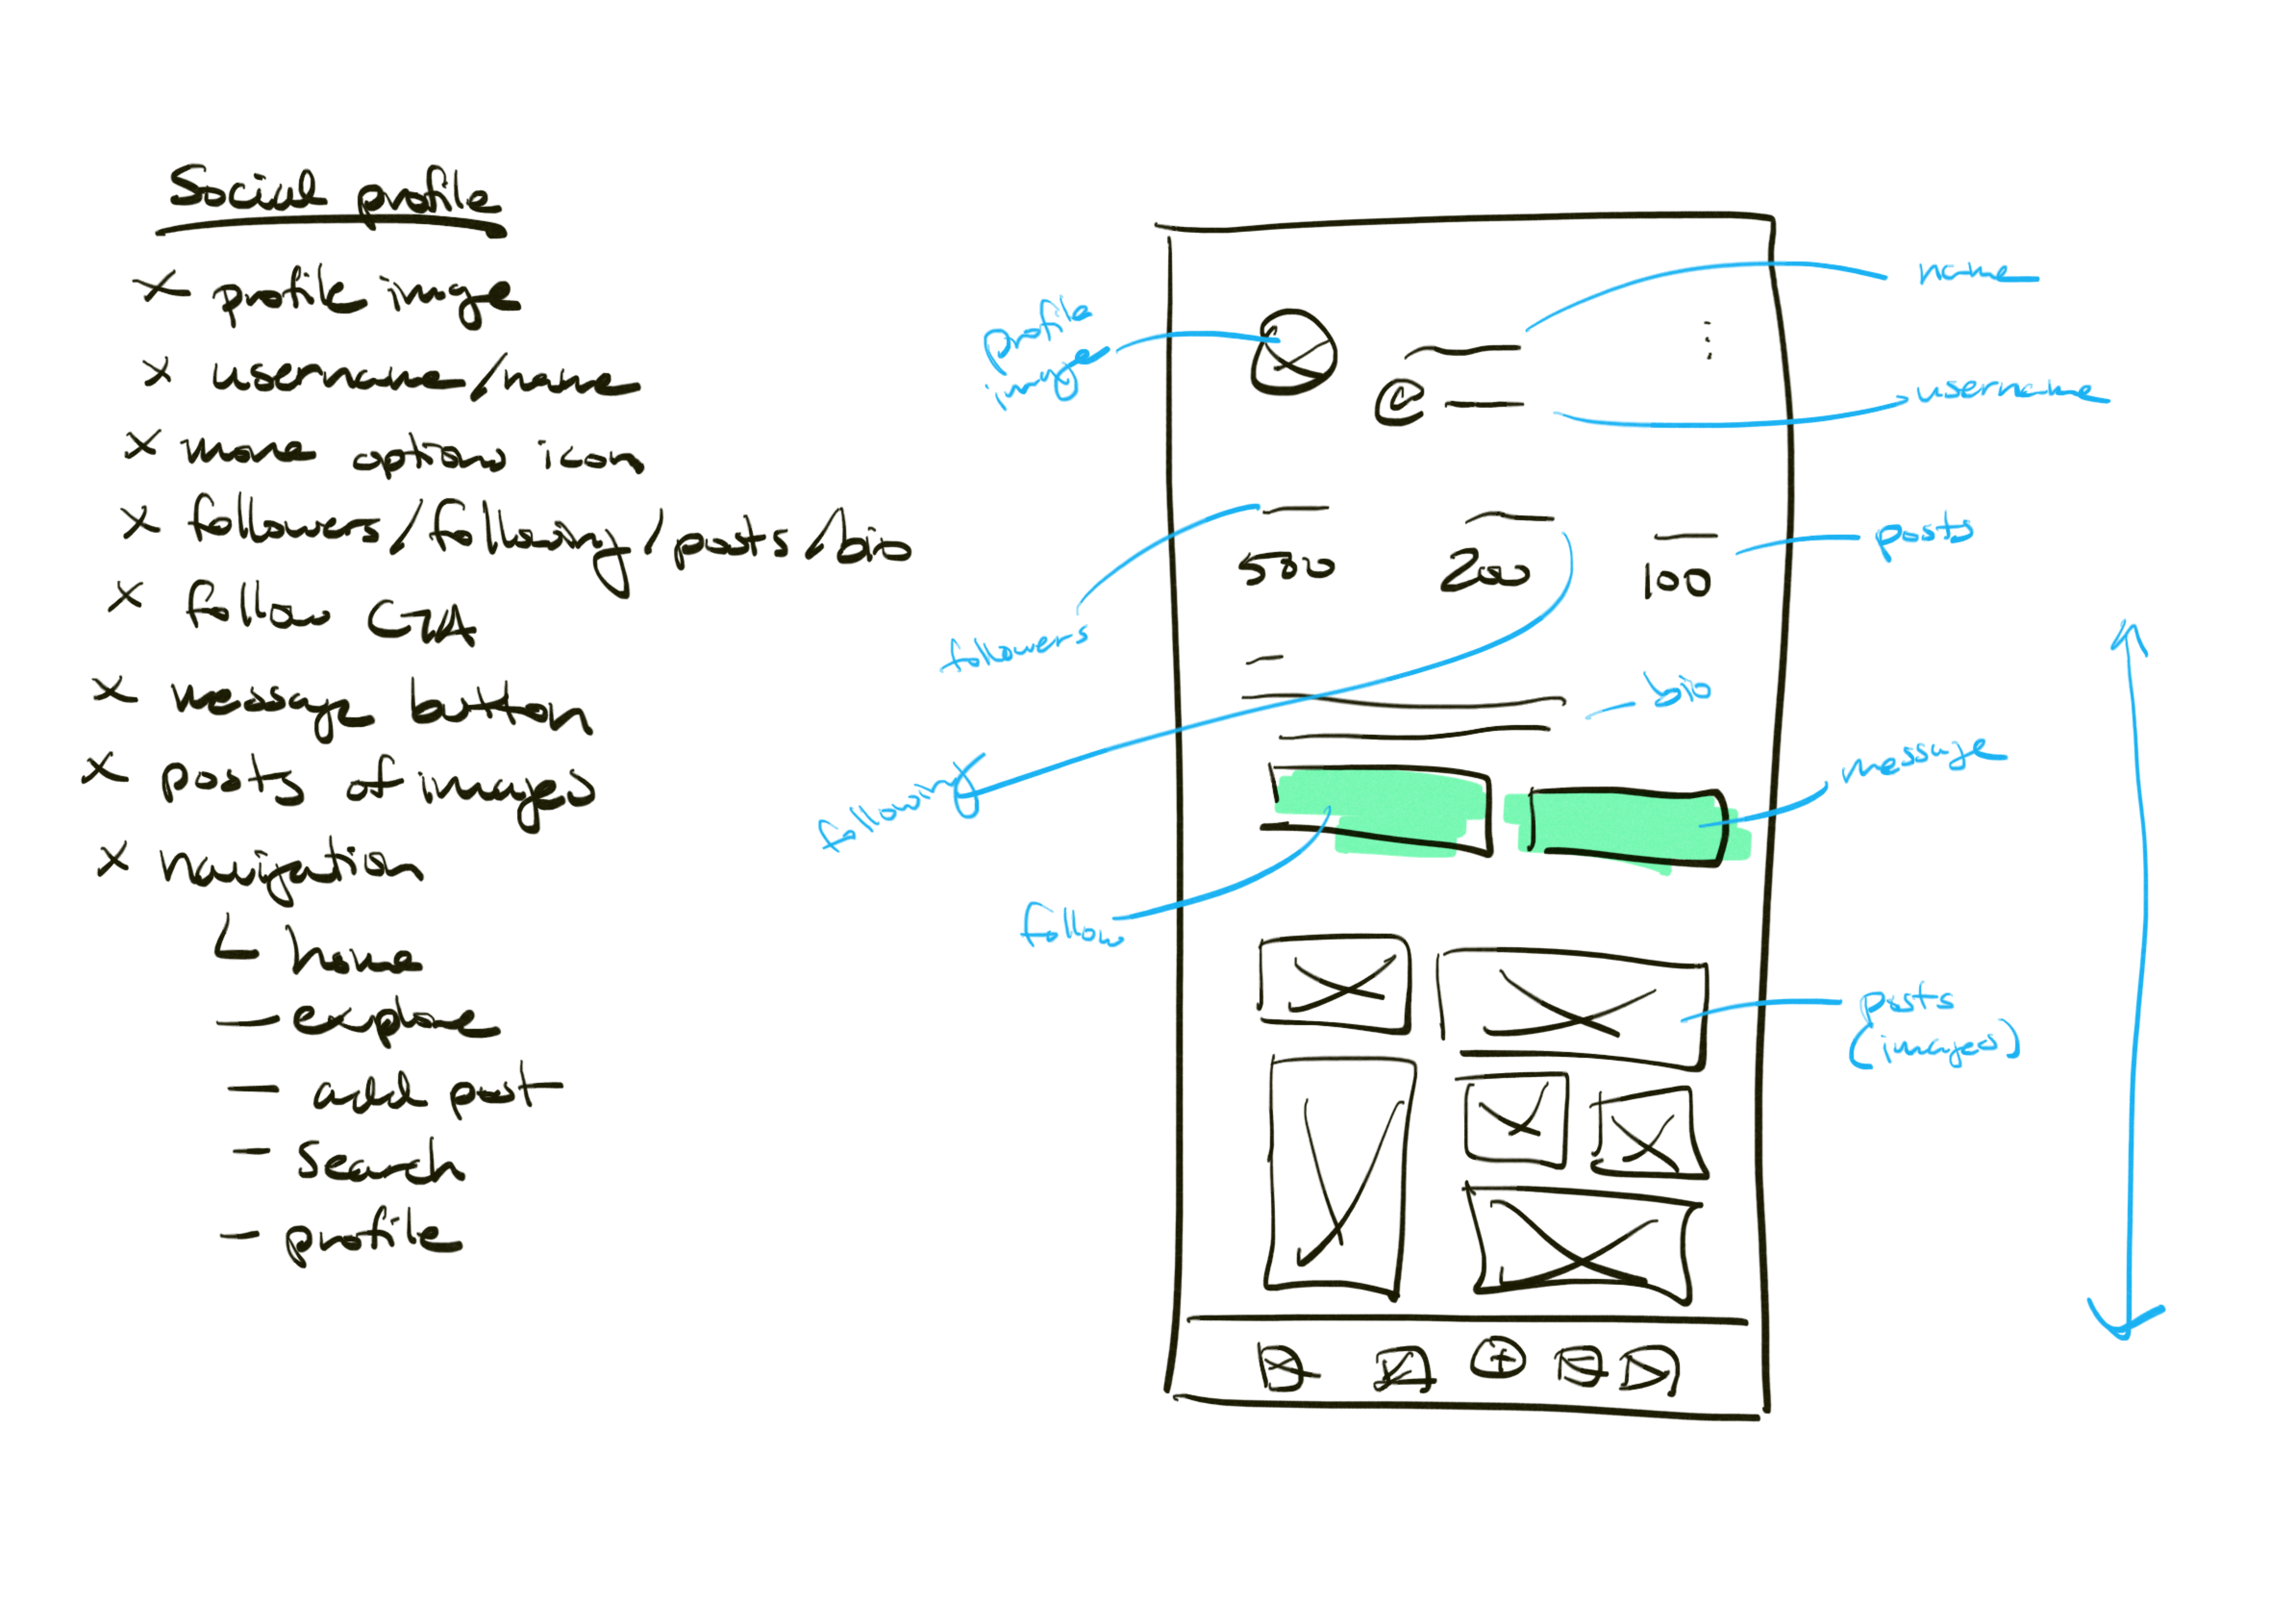 Social profile
x profile image
x username/name
x more options icon
x followers/following/posts/bio
x follow CTA
x message button
x posts of images
x navigation
home
- explore
- add post
- search
- profile
profile
image
name
@
username
followers
580
200
100
posts
following
bio
message
follow
posts
(images)